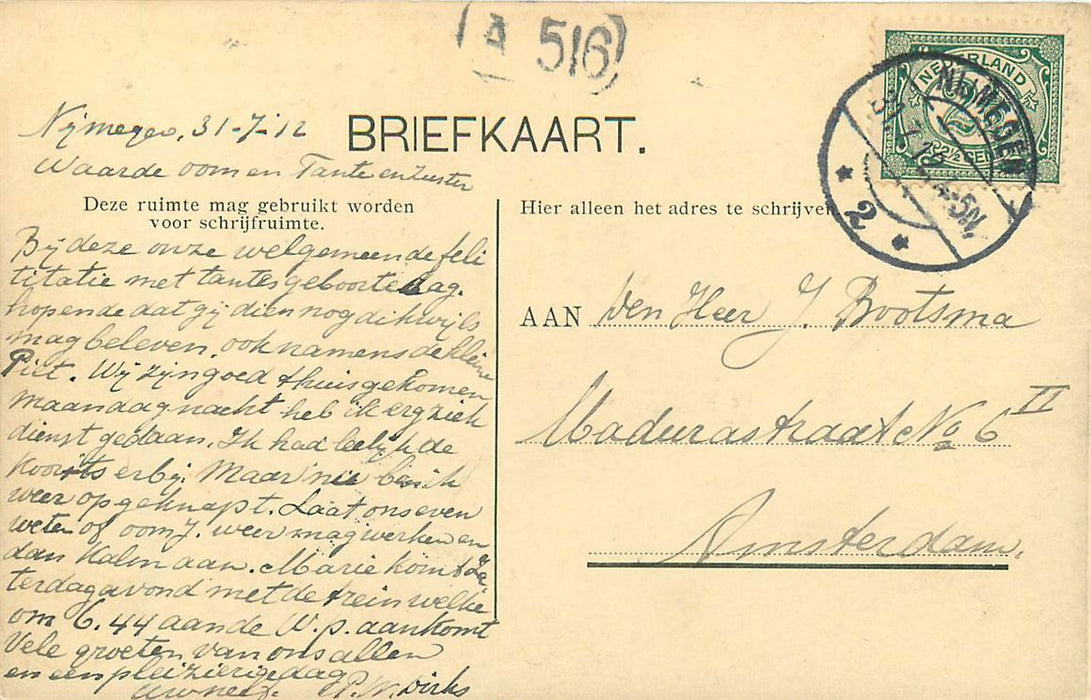 (A 516)
NEDERLAND
2½ CENT
NIJMEGEN
4-5N.
2
Nijmegen, 31-7-'12
BRIEFKAART.
Waarde oom en Tante en Zuster
Deze ruimte mag gebruikt worden
voor schrijfruimte.
Bij deze onze welgemeende feli
titatie met tantes geboortedag.
hopende dat gij dien nog dikwijls
mag beleven, ook namens de kleine
Piet. Wij zijn goed thuis gekomen
maandagnacht heb ik erg ziek
dienst gedaan. Ik had leelijk de
koorts erbij. Maar nu ben ik
weer opgeknapt. Laat ons even
weten of oom J. weer mag werken en
dan kalm aan. Marie komt Za
terdagavond met de trein welke
om 6.44 aan de W.p. aankomt
Vele groeten van ons allen
en een pleizierige dag
P.W. Dirks
Hier alleen het adres te schrijven
AAN Den Heer J. Bootsma
Madurastraat No 6 II
Amsterdam.